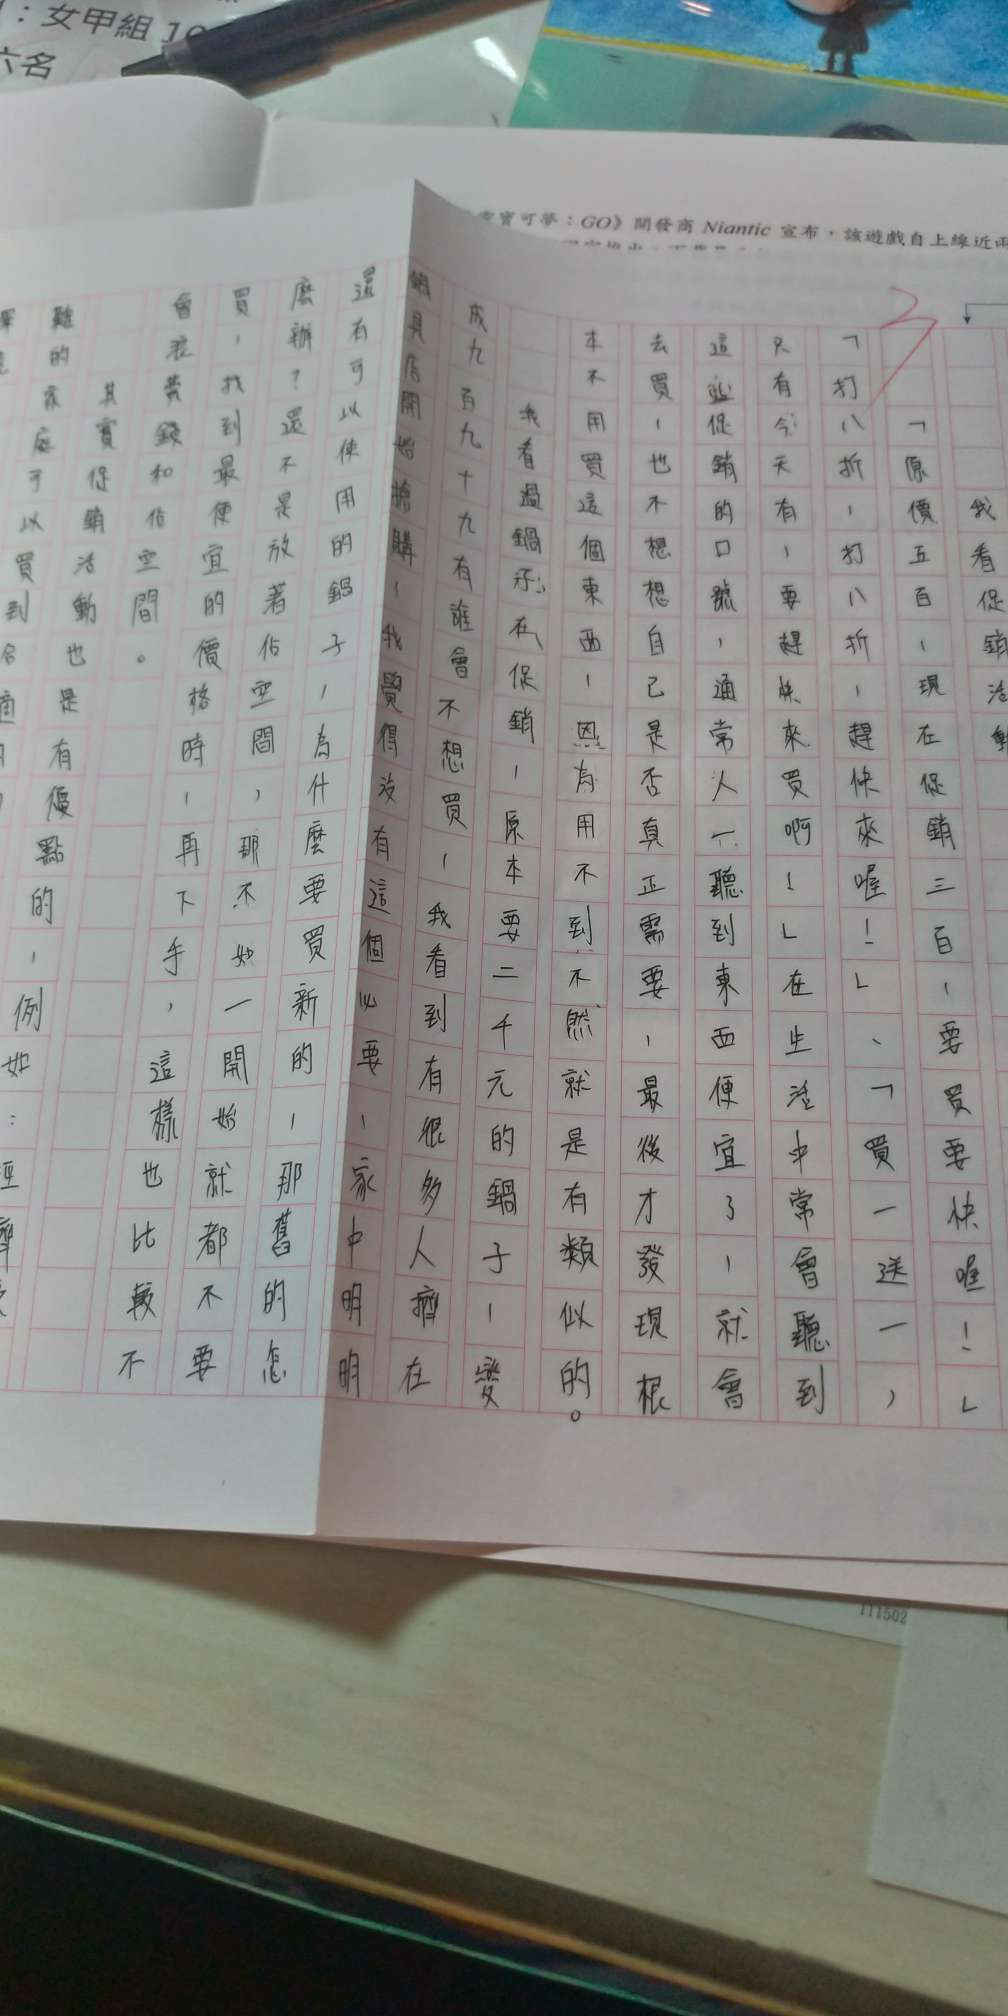 ：女甲組10
六名
寶可夢：GO》開發商 Niantic 宣布，該遊戲自上線近兩
我看促銷活動
「原價五百，現在促銷三百，要買要快喔！」
「打八折，打八折，趕快來喔！」、「買一送一，
只有今天有，要趕快來買啊！」在生活中常會聽到
這些促銷的口號，通常人一聽到東西便宜了，就會
去買，也不想想自己是否真正需要，最後才發現根
本不用買這個東西，因為用不到不然就是有類似的。
我看過鍋子在促銷，原本要二千元的鍋子，變
成九百九十九有誰會不想買，我看到有很多人擠在
鍋具店開始搶購，我覺得沒有這個必要，家中明明
還有可以使用的鍋子，為什麼要買新的，那舊的怎
麼辦？還不是放著佔空間，那不如一開始就都不要
買，找到最便宜的價格時，再下手，這樣也比較不
會浪費錢和佔空間。
其實促銷活動也是有優點的，例如：
難的家庭可以買到
111502